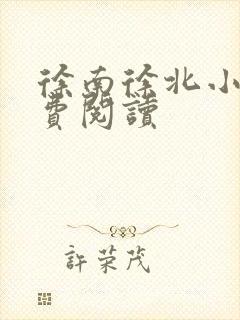 徐南徐北小
費閱讀
許荣茂